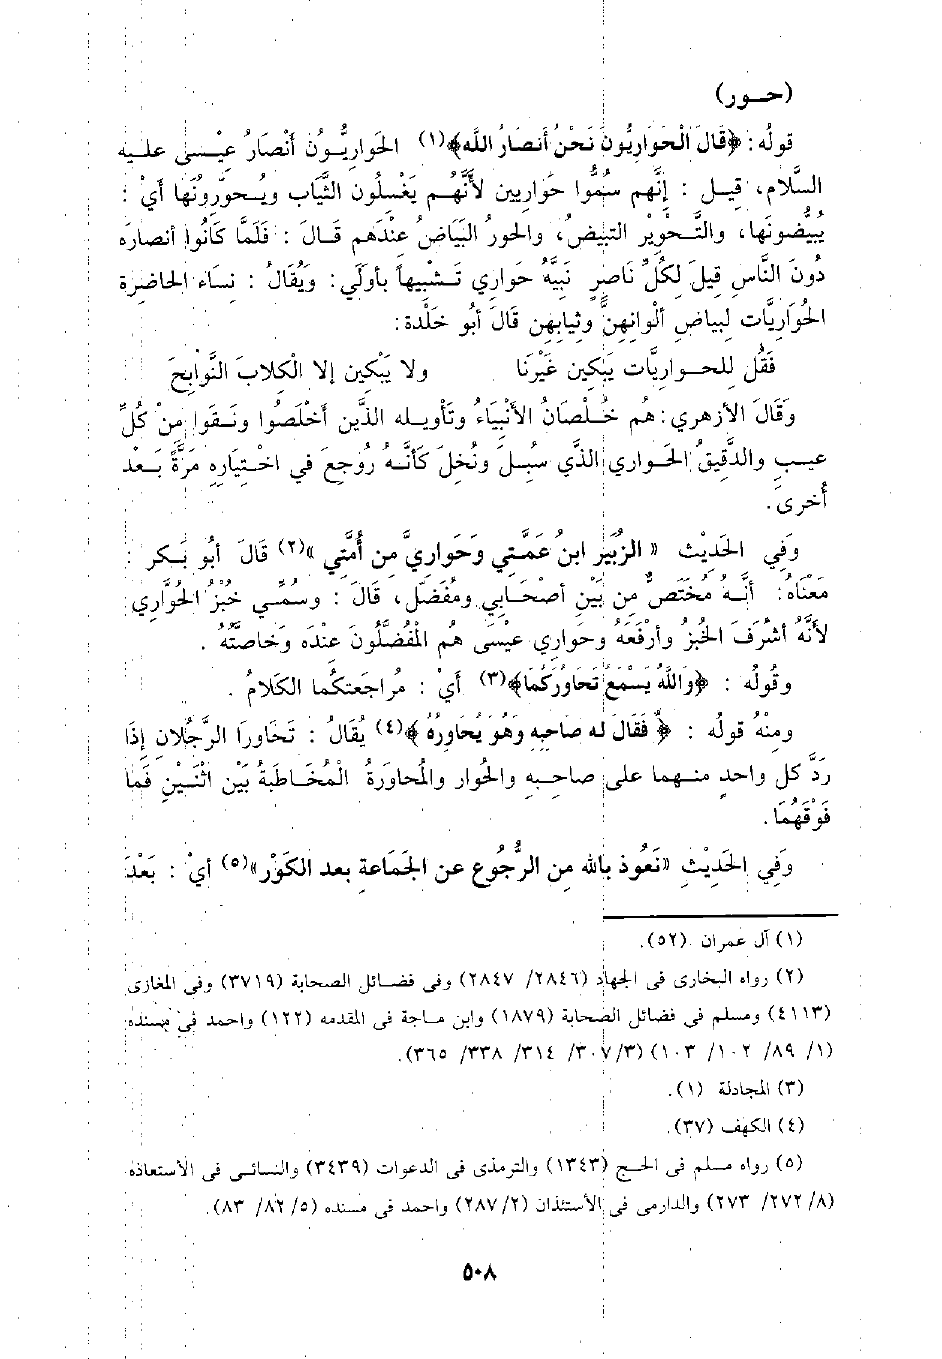 (حـور)
قولُه: ﴿قَالَ الْحَوَارِيُّونَ نَحْنُ أَنصَارُ اللَّه﴾(١) الحَوارِيُّون أَنْصَارُ عِيْسى عليه
السَّلام، قِيـل : إنَّهم سُمُّوا حَوارِيين لأنَّهُـم يَغْسِلُون الثِّيَاب ويُـحوِّرونُها أيْ :
يُبيِّضُونَها، والتَّـحْوِيْر التبيضُ، والحورُ البَيَاضُ عِنْدَهم قَـالَ : فَلَمَّا كَانُوا أنصارَه
دُونَ النَّاسِ قِيلَ لِكُلِّ نَاصِرٍ نَبِيَّهُ حَوارِي تَـشْبِيهاً بأولَي: وَيُقالُ : نسَاء الحاضِرة
الحُوَارِيَّات لبياضِ ألْوانِهنَّ وثيابِهن قَالَ أبُو خَلْدة:
فَقُل لِلحـوارِيَّات يَبْكِين غَيْرَنَا ولا يَبْكِين إلا الْكلابَ النَّوابِحَ
وَقَالَ الأزهرِي: هُم خُـلْصَانُ الأنْبِيَاءُ وتَأوِيـله الذَّين أخْلَصُوا ونَـقَوا مِنْ كُلِّ
عيـب والدَّقِيقُ الحَوارِي الذَّي سبُـلَ ونُخلَ كَأنَّـهُ رُوجِعَ في اخْـتِيَارِهِ مَرَّةً بَـعْد
أُخرىَ.
وَفِي الحَدِيْث « الزُبَيْر ابنُ عَمَّتي وَحَوارِيَّ من أُمَّتي »(٢) قَالَ أبُو بَـكر :
مَعْنَاهُ: أنَّـهُ مُخْتَصٌ مِن بَيْن أصْحَابِي ومُفَضَّل، قَالَ : وسُمِّـي خُبْزُ الحُوَّارِي
لأنَّهُ أشْرَفَ الخبزُ وأرْفَعَهُ وحَوارِي عيْسَى هُم الْمُفَضَّلُونَ عنْدَه وَخَاصَّتهُ .
وقُولُه : ﴿وَاللَّهُ يَسْمَعُ تَحَاوُرَكُمَا﴾(٣) أيْ : مُراجَعتكُما الكَلامُ .
ومِنْهُ قولُه : ﴿ فَقَالَ له صاحِبِه وَهُوَ يُحَاوِرُهُ ﴾(٤) يُقَالُ : تَحَاوَرا الرَّجُلانِ إذَا
رَدَّ كل واحدٍ منـهما على صاحـبِهِ والحُوار والمُحاورَةُ الْمُخَاطَبةُ بَيْن اثْنَـيْنِ فَما
فَوْقَهُمَا.
وَفِي الحَدِيْثِ «نَعُوذ بالله مِن الرجُّوع عن الجَمَاعة بعد الكَوْر»(٥) أيْ : بَعْدَ
(١) آل عمران (٥٢).
(٢) رواه البخارى فى الجهاد (٢٨٤٦/ ٢٨٤٧) وفى فضـائل الصحابة (٣٧١٩) وفى المغازى
(٤١١٣) ومسلم فى فضائل الصحابة (١٨٧٩) وابن مـاجة فى المقدمه (١٢٢) واحمد فى مسنده
(١/ ٨٩/ ١٠٢/ ١٠٣) (٣/ ٣٠٧/ ٣١٤/ ٣٣٨/ ٣٦٥).
(٣) المجادلة (١).
(٤) الكهف (٣٧).
(٥) رواه مسلم فى الحـج (١٣٤٣) والترمذى فى الدعوات (٣٤٣٩) والنسائـى فى الأستعاذه
(٨/ ٢٧٢/ ٢٧٣) والدارمى فى الأستئذان (٢/ ٢٨٧) واحمد فى مسنده (٥/ ٨٢/ ٨٣).
٥٠٨